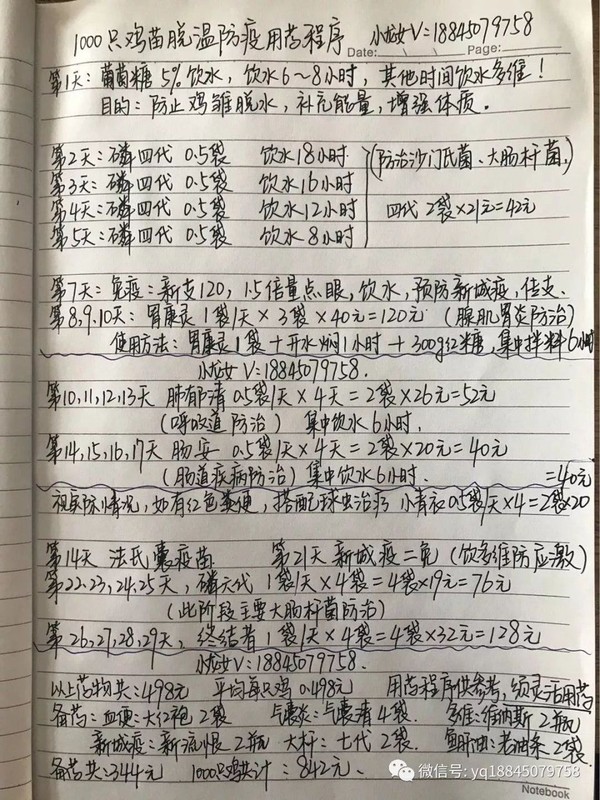 1000只鸡苗脱温防疫用药程序 小龙女V=18845079758
Date: Page:
第1天:葡萄糖5%饮水,饮水6~8小时,其他时间饮水多维!
目的:防止鸡雏脱水,补充能量,增强体质。
第2天:磷四代 0.5袋 饮水18小时 (防治沙门氏菌、大肠杆菌,)
第3天:磷四代 0.5袋 饮水16小时
第4天:磷四代 0.5袋 饮水12小时 四代 2袋×21元=42元
第5天:磷四代 0.5袋 饮水8小时
第7天:免疫:新支120,1.5倍量点眼,饮水,预防新城疫,传支.
第8,9,10天:胃康灵1袋/天×3袋×40元=120元 (腺肌胃炎防治)
使用方法:胃康灵1袋+开水焖1小时+300g红糖,集中拌料6小时
小龙女V=18845079758.
第10,11,12,13天 肺郁清 0.5袋/天×4天=2袋×26元=52元
(呼吸道防治) 集中饮水6小时,
第14,15,16,17天 肠安 0.5袋/天×4天=2袋×20元=40元
(肠道疾病防治)集中饮水6小时. =40元
视实际情况,如有红色粪便,搭配球虫治疗 小青衣0.5袋/天×4=2袋×20
第14天 法氏囊疫苗 第21天 新城疫二免(饮多维防应激)
第22,23,24,25天,磷六代 1袋/天×4袋=4袋×19元=76元
(此阶段主要大肠杆菌防治)
第26,27,28,29天,终结者 1袋/天×4袋=4袋×32元=128元
小龙女V=18845079758.
以上药物共:498元 平均每只鸡0.498元 用药程序供参考,须灵活用药
备药:血便:大红袍2袋 气囊炎:气囊清4袋. 多维:维纳斯2瓶
新城疫:新流恨2瓶 大杆:七代2袋. 鱼肝油:老油条2袋.
备药共:344元 1000只鸡共计:842元.
微信号: yq18845079758
Notebook